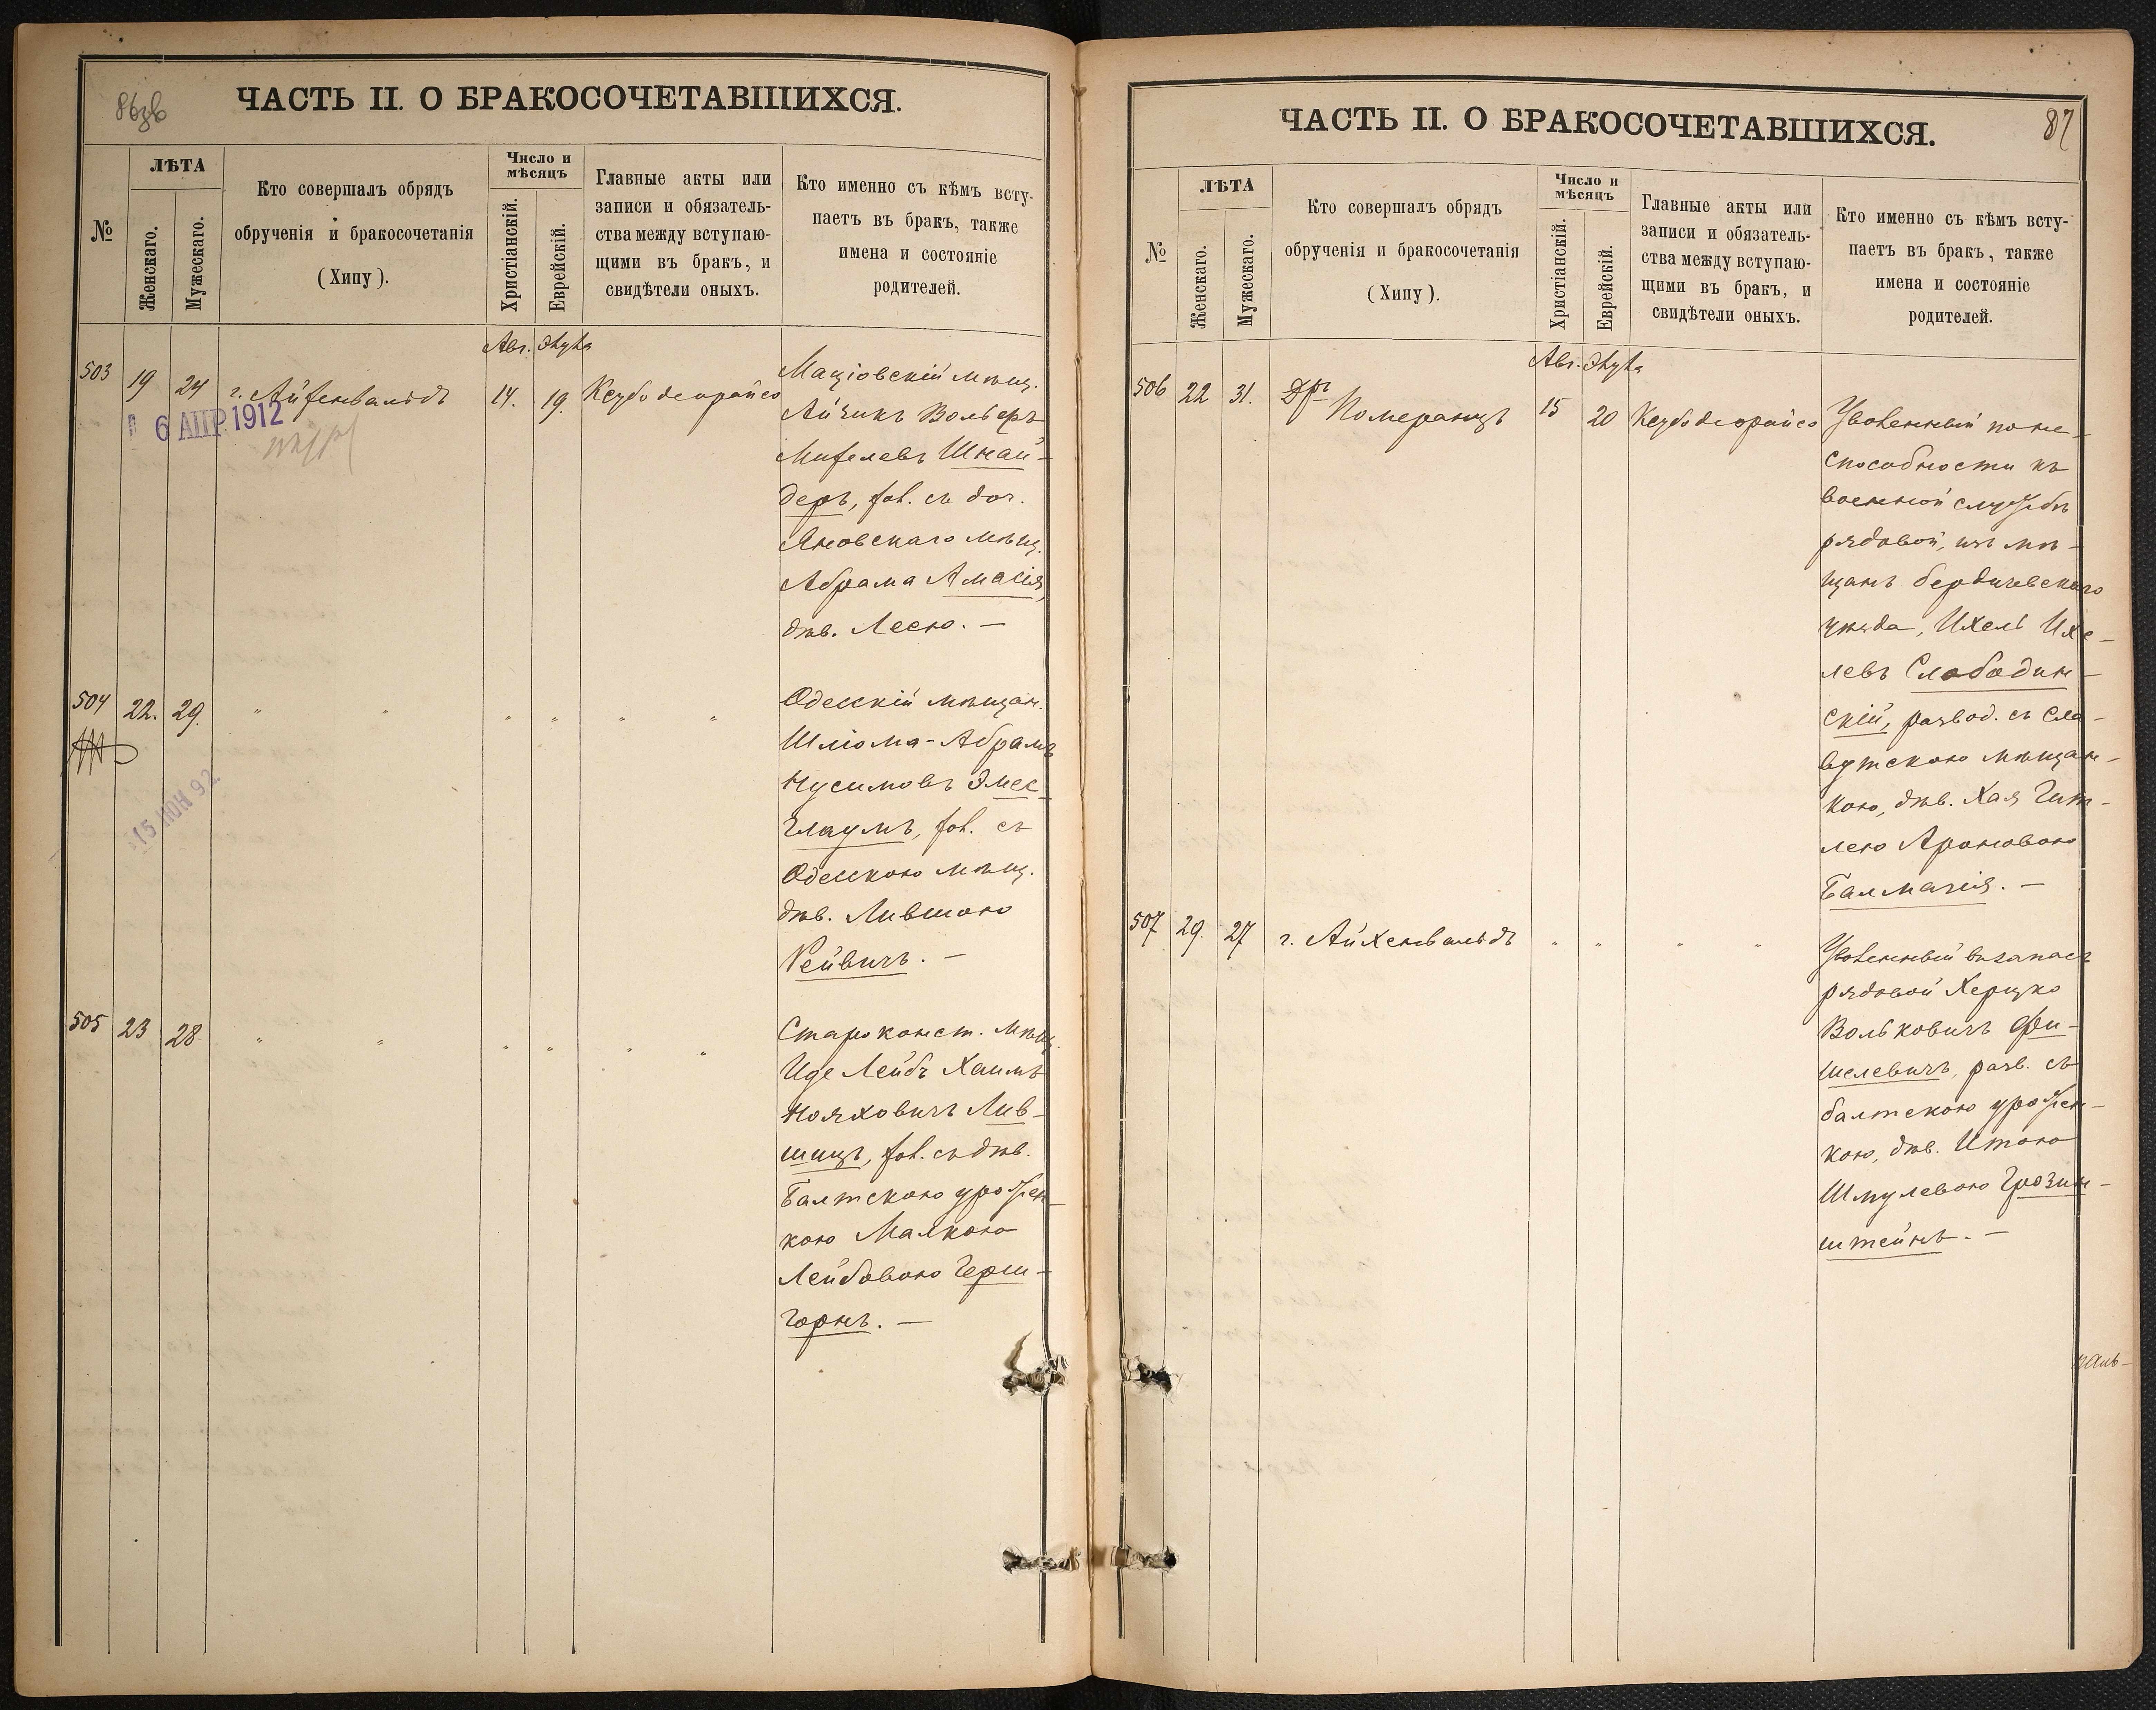 ЧАСТЬ II. О БРАКОСОЧЕТАВШИХСЯ.
№
ЛѢТА
Женскаго.
Мужескаго.
Кто совершалъ обрядъ
обрученія и бракосочетанія
(Хипу).
Число и
мѣсяцъ
Христіанскій.
Еврейскій.
Главные акты или
записи и обязатель-
ства между вступаю-
щими въ бракъ, и
свидѣтели оныхъ.
Кто именно съ кѣмъ всту-
паетъ въ бракъ, также
имена и состояніе
родителей.
Авг.
503 19 24 г. Айхенвальдъ 14. 19. Ксубо деорайсо
6 АПР 1912
Маціовскій мѣщ.
Айзикъ Вольфъ
Михелевъ Шнай-
деръ, хол. съ доч.
Яновскаго мѣщ.
Абрама Амасія,
дѣв. Лесю. —
504 22. 29. " " " " " "
15 ИЮН 92
Одесскій мѣщан.
Шліома-Абрамъ
Нусимовъ Элес-
Глаумъ, хол. съ
Одесскою мѣщ.
дѣв. Лившою
Рейвичъ. —
505 23 28 " " " " " "
Староконст. мѣщ.
Иде Лейбъ Хаимъ
Нояховичъ Лив-
шицъ, хол. съ дѣв.
Балтскою урожен-
кою Малкою
Лейбовою Герш-
горнъ. —
ЧАСТЬ II. О БРАКОСОЧЕТАВШИХСЯ.
87
№
ЛѢТА
Женскаго.
Мужескаго.
Кто совершалъ обрядъ
обрученія и бракосочетанія
(Хипу).
Число и
мѣсяцъ
Христіанскій.
Еврейскій.
Главные акты или
записи и обязатель-
ства между вступаю-
щими въ бракъ, и
свидѣтели оныхъ.
Кто именно съ кѣмъ всту-
паетъ въ бракъ, также
имена и состояніе
родителей.
Авг.
506 22 31. Дръ Померанцъ 15 20 Ксубо деорайсо
Уволенный по не-
способности къ
военной службѣ
рядовой, изъ мѣ-
щанъ бердичевскаго
уѣзда, Ихель Ихе-
левъ Слободин-
скій, развод. съ Сла-
вутскою мѣщан-
кою, дѣв. Хая Гит-
лею Ароновою
Балмагія. —
507 29. 27 г. Айхенвальдъ " " " "
Уволенный въ запасъ
рядовой Херцко
Вольковичъ Фи-
шелевичъ, разв. съ
балтскою урожен-
кою, дѣв. Итою
Шмулевою Грозин-
штейнъ. —